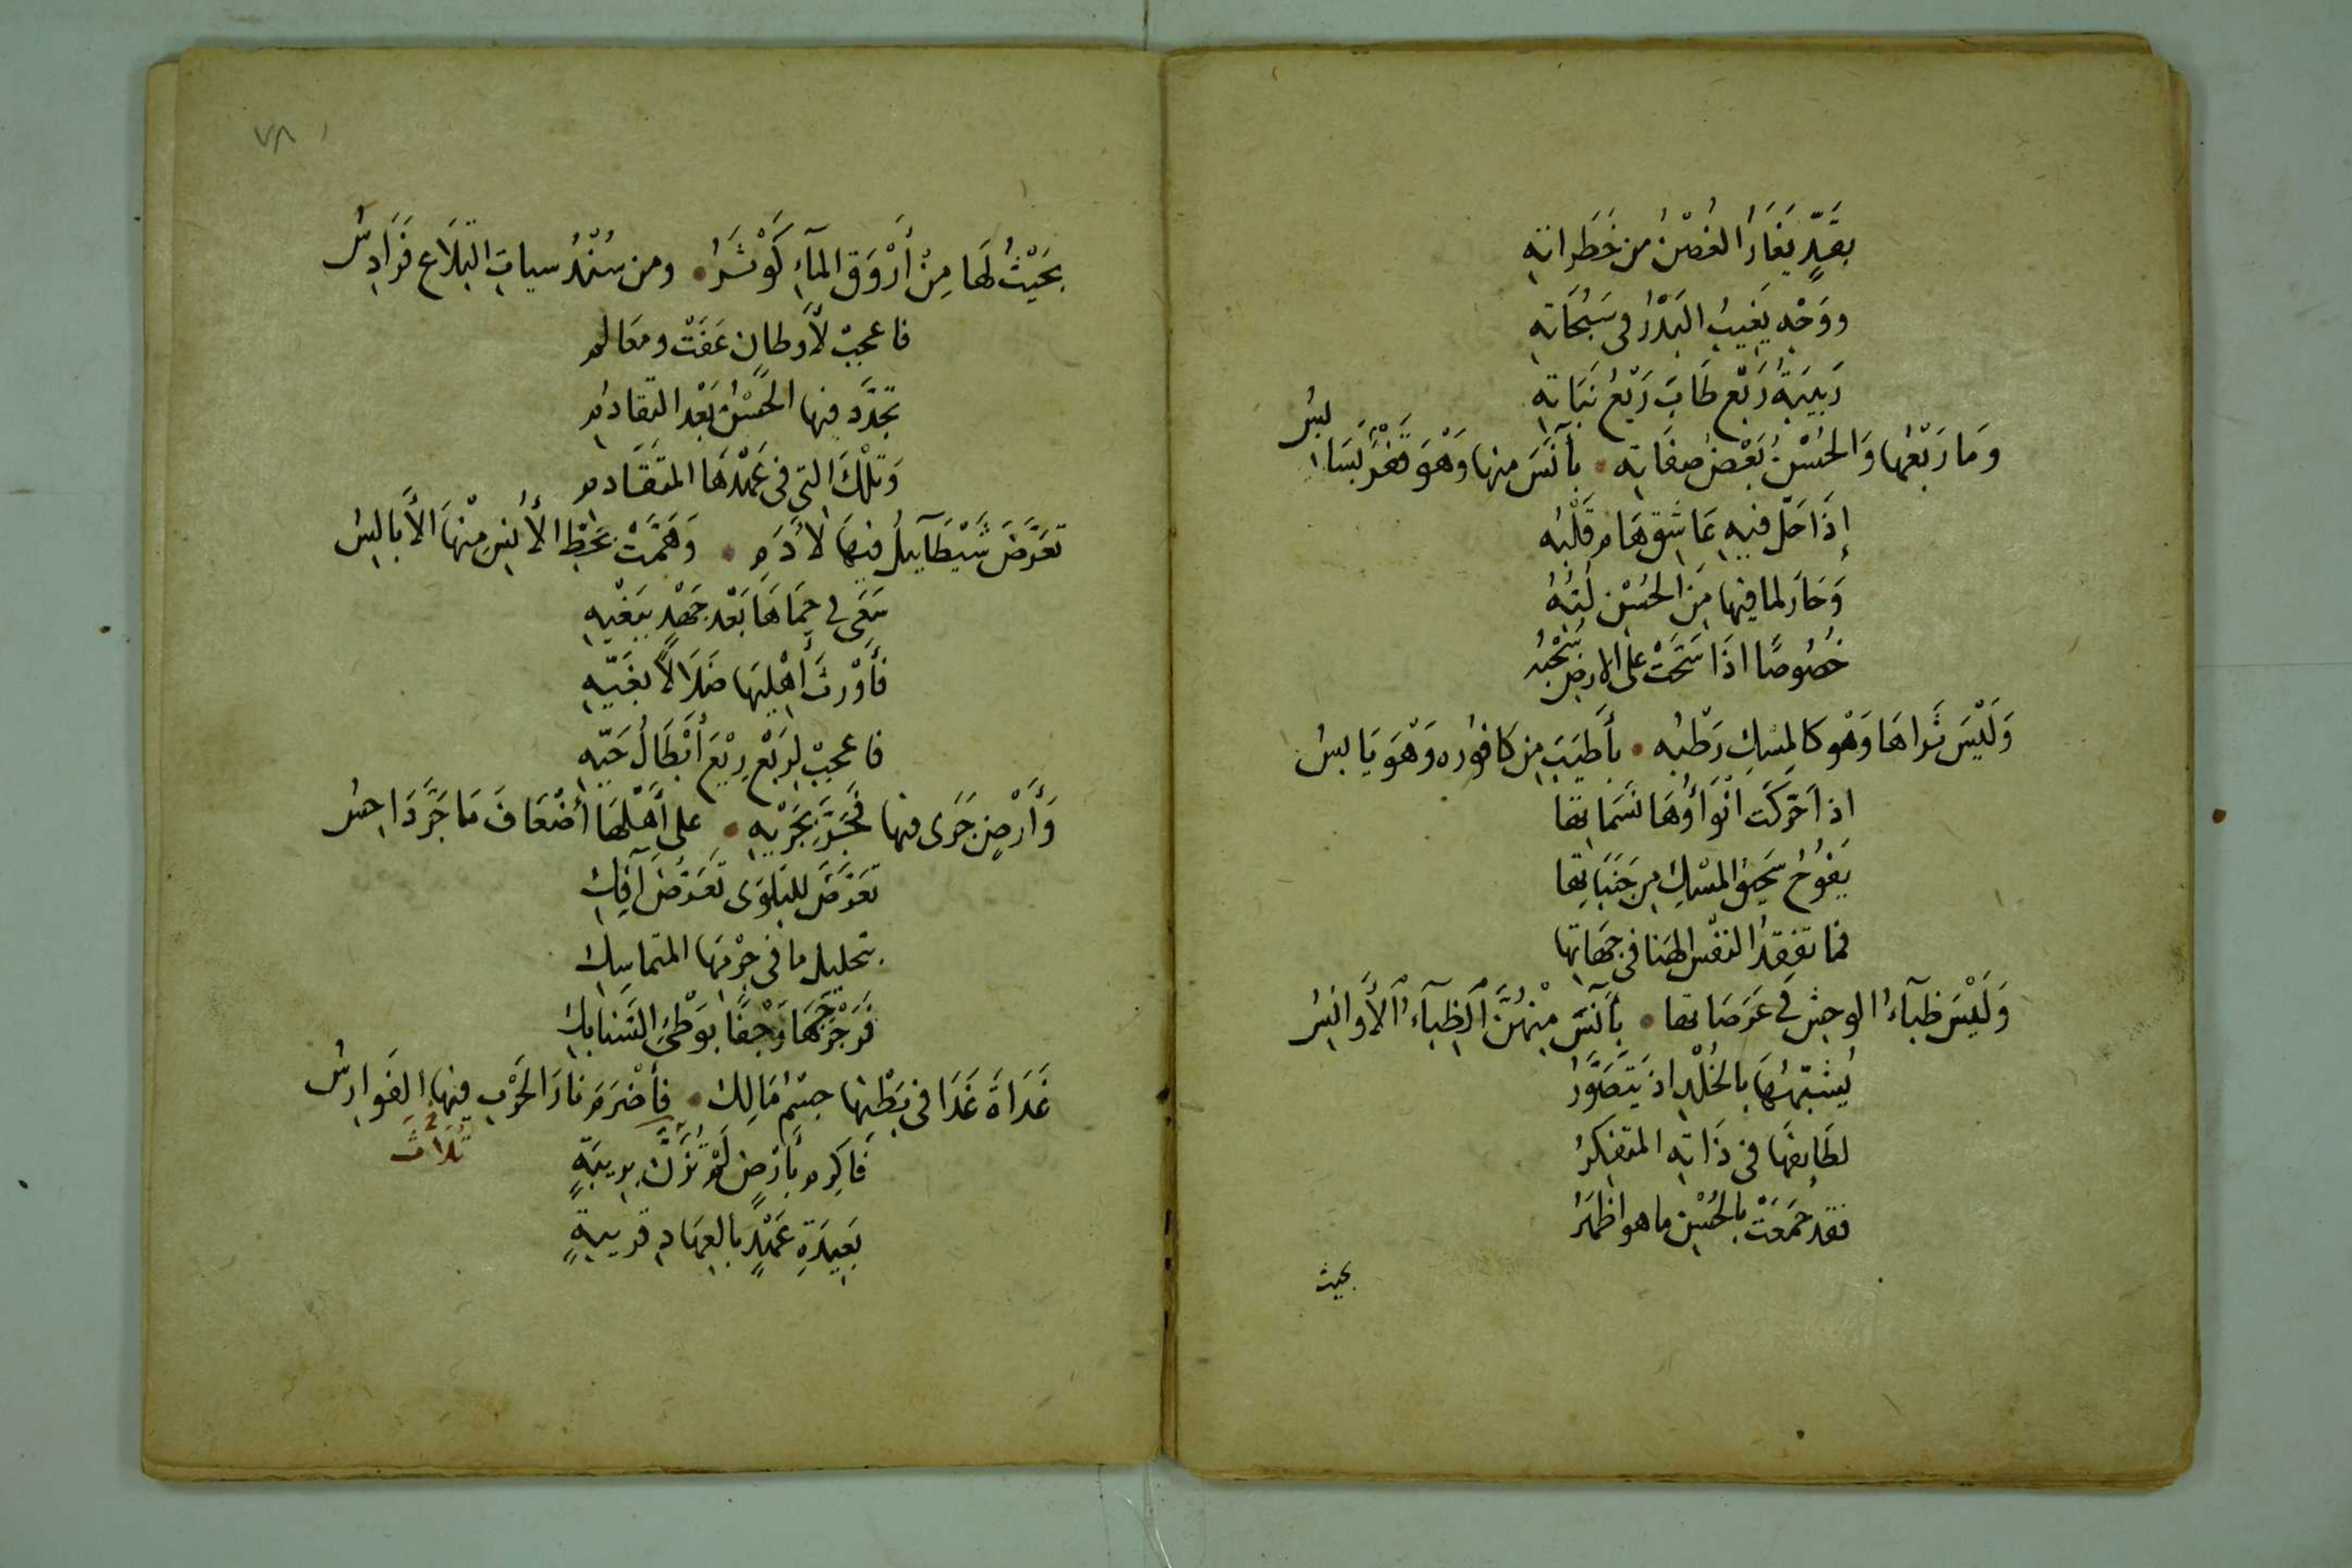 بِقَدٍّ يَغَارُ الغُصْنُ من خَطَراتِهِ
ووَجْهٍ يَغِيبُ البَدْرُ في سَبُحَاتِهِ
رَبِيبَةُ رَبْعٍ طَابَ رَبْعُ نَبَاتِهِ
وَمَا رَبْعُهَا وَالحُسْنُ بَعْضُ صِفَاتِهِ • بِآنَسَ منها وَهْوَ قَفْرٌ بَسَابِسُ
إِذَا حَلَّ فيهِ عَاشِقٌ هَامَ قَلْبُه
وَحَارَ لما فيها مِنَ الحُسْنِ لُبُّهُ
خُصُوصًا اذَا سَحَّتْ على الارضِ سُحْبُه
وَلَيْسَ ثَراهَا وَهْوَ كالمِسْكِ رَطْبُه • بِأَطْيَبَ مِن كَافُورِه وَهْوَ يَابِسُ
اذا حَرَّكَت انْوَاؤُهَا نَسَمَاتها
يَفُوحُ سَحِيقُ المِسْكِ مِن جَنَبَاتِها
فما تفقِدُ النفْسُ الهنا في جِهَاتِها
وَلَيْسَ ظِبَاءُ الوحشِ في عَرَصَاتها • بِآنَسَ مِنْهُنَّ الظِبَآءُ الأَوَانِسُ
يُشَبِّهُهَا بالخُلْدِ اذ يَتَصَوَّرُ
لَطَايِفَهَا في ذَاتِهِ المتفكِرُ
فقد جَمَعَتْ بالحُسْنِ ما هو اظهَرُ
بحيث
٧٨
بِحَيْثُ لَهَا مِنْ أَرْوَقِ المآءِ كَوْثَرٌ • ومن سُنْدُسِ التِلَاعِ فَرَادِسُ
فاعجبْ لأَوطانٍ عَفَتْ ومعَالم
تجدَّدَ فيها الحُسْنُ بَعْدَ التقادُمِ
وَتِلْكَ التي في عَهْدِهَا المتقَادمِ
تعَرَّضَ شَيْطَايِيلُ فيهَا لآدَمٍ • وَهَمَّتْ بِحَظِّ الأُنْسِ مِنْهَا الأَبَالِسُ
سَعَى في حِمَاهَا بَعْدَ جَهْدٍ بِبَغْيِهِ
فَأَوْرثَ أَهْلِيهَا ضَلَالًا بغَيِّهِ
فاعجبْ لِرَبْعٍ رِيْعَ أَبْطَالُ حَيِّهِ
وَأَرْضٍ جَرَى فيها بِجَرْيِهِ • على أَهْلِهَا أَضْعَافَ مَا جَرَّ دَاحِسُ
تعَرَّضَ للبَلْوَى تَعَرُّضَ آفِكِ
بتحليلِ ما في جِرْمِهَا المتماسِكِ
وَجْفًا بوَطْئِ السَنابِكِ
غَدَاةَ غَدَا في بَطْنِهَا جِسْمُ مَالِكٍ • فأَضْرَمَ نارَ الحَرْبِ فيها الفَوارِسُ
ثَلَاثَ
فَاكرِم بِأَرْضٍ لَمْ تُزَنَّ بِرِيبَةٍ
بَعِيدَةِ عَهْدٍ بالعِهَادِ قريبةٍ